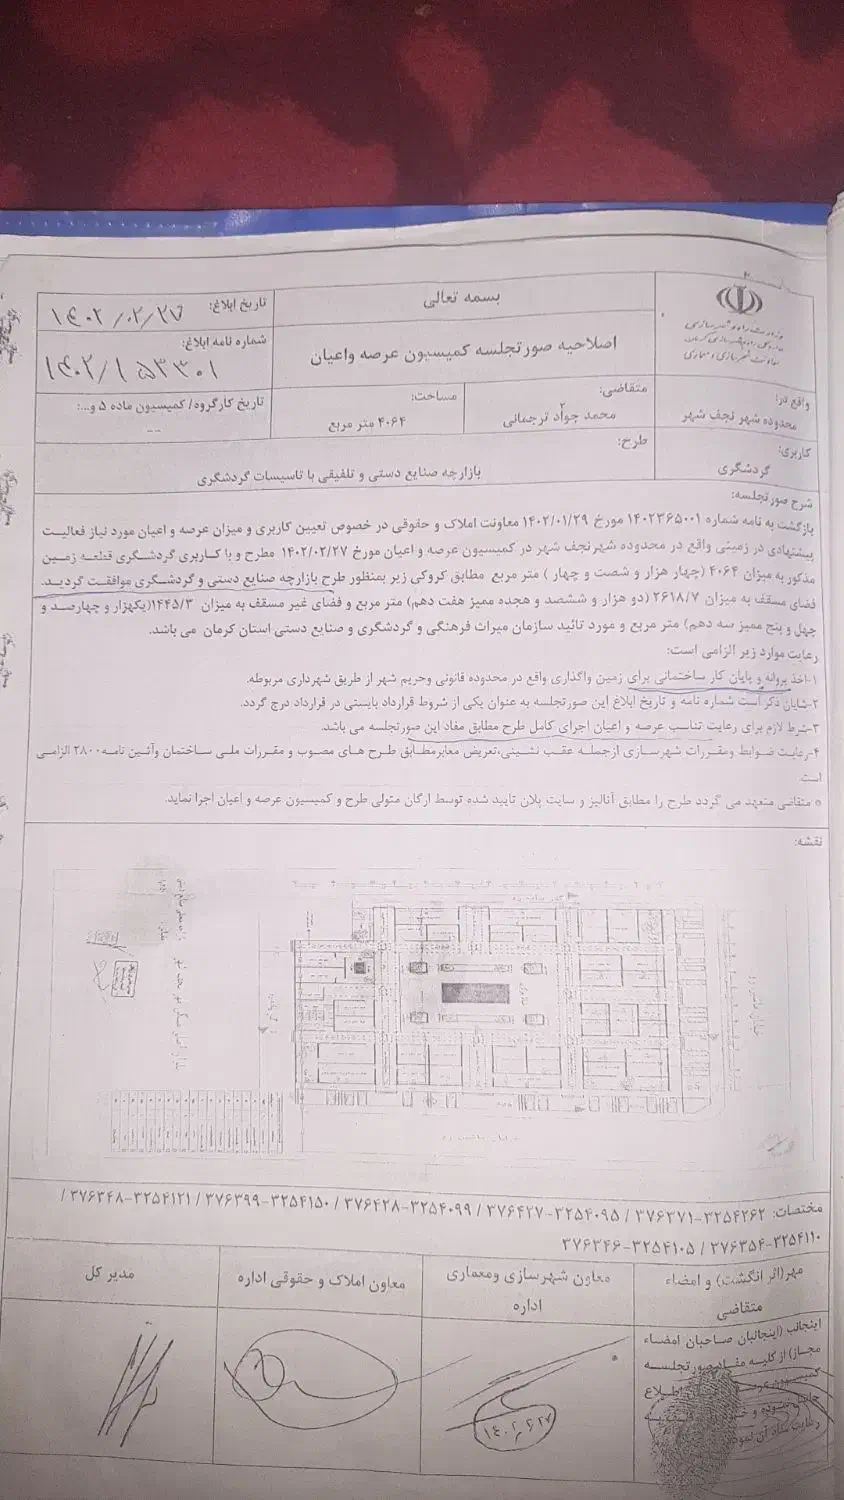 بسمه تعالی
اصلاحیه صورتجلسه کمیسیون عرصه واعیان
تاریخ ابلاغ: ۱۴۰۲/۰۲/۲۷
شماره نامه ابلاغ:
۱۴۰۲/۱۵۳۳۰۱
واقع در:
محدوده شهر نجف شهر
متقاضی:
محمد جواد ترجمانی
مساحت:
۴۰۶۴ متر مربع
تاریخ کارگروه/ کمیسیون ماده ۵ و...:
--
کاربری:
گردشگری
طرح:
بازارچه صنایع دستی و تلفیقی با تاسیسات گردشگری
شرح صورتجلسه:
بازگشت به نامه شماره ۱۴۰۲۳۶۵۰۰۱ مورخ ۱۴۰۲/۰۱/۲۹ معاونت املاک و حقوقی در خصوص تعیین کاربری و میزان عرصه و اعیان مورد نیاز فعالیت
پیشنهادی در زمینی واقع در محدوده شهرنجف شهر در کمیسیون عرصه و اعیان مورخ ۱۴۰۲/۰۲/۲۷ مطرح و با کاربری گردشگری قطعه زمین
مذکور به میزان ۴۰۶۴ (چهار هزار و شصت و چهار ) متر مربع مطابق کروکی زیر بمنظور طرح بازارچه صنایع دستی و گردشگری موافقت گردید.
فضای مسقف به میزان ۲۶۱۸/۷ (دو هزار و ششصد و هجده ممیز هفت دهم) متر مربع و فضای غیر مسقف به میزان ۱۴۴۵/۳(یکهزار و چهارصد و
چهل و پنج ممیز سه دهم) متر مربع و مورد تائید سازمان میراث فرهنگی و گردشگری و صنایع دستی استان کرمان می باشد.
رعایت موارد زیر الزامی است:
۱-اخذ پروانه و پایان کار ساختمانی برای زمین واگذاری واقع در محدوده قانونی وحریم شهر از طریق شهرداری مربوطه.
۲-شایان ذکر است شماره نامه و تاریخ ابلاغ این صورتجلسه به عنوان یکی از شروط قرارداد بایستی در قرارداد درج گردد.
۳-شرط لازم برای رعایت تناسب عرصه و اعیان اجرای کامل طرح مطابق مفاد این صورتجلسه می باشد.
۴-رعایت ضوابط ومقررات شهرسازی ازجمله عقب نشینی،تعریض معابرمطابق طرح های مصوب و مقررات ملی ساختمان وآئین نامه۲۸۰۰ الزامی
است.
* متقاضی متعهد می گردد طرح را مطابق آنالیز و سایت پلان تایید شده توسط ارگان متولی طرح و کمیسیون عرصه و اعیان اجرا نماید.
نقشه:
مختصات: ۳۷۶۳۷۱-۳۲۵۴۲۶۲ / ۳۷۶۴۲۷-۳۲۵۴۰۹۵ / ۳۷۶۴۲۸-۳۲۵۴۰۹۹ / ۳۷۶۳۹۹-۳۲۵۴۱۵۰ / ۳۷۶۳۴۸-۳۲۵۴۱۲۱ /
۳۷۶۳۵۴-۳۲۵۴۱۱۰ / ۳۷۶۳۴۶-۳۲۵۴۱۰۵
مهر(اثر انگشت) و امضاء
متقاضی
معاون شهرسازی ومعماری
اداره
معاون املاک و حقوقی اداره
مدیر کل
اینجانب (اینجانبان صاحبان امضاء
مجاز) از کلیه مفاد صورتجلسه
اطلاع